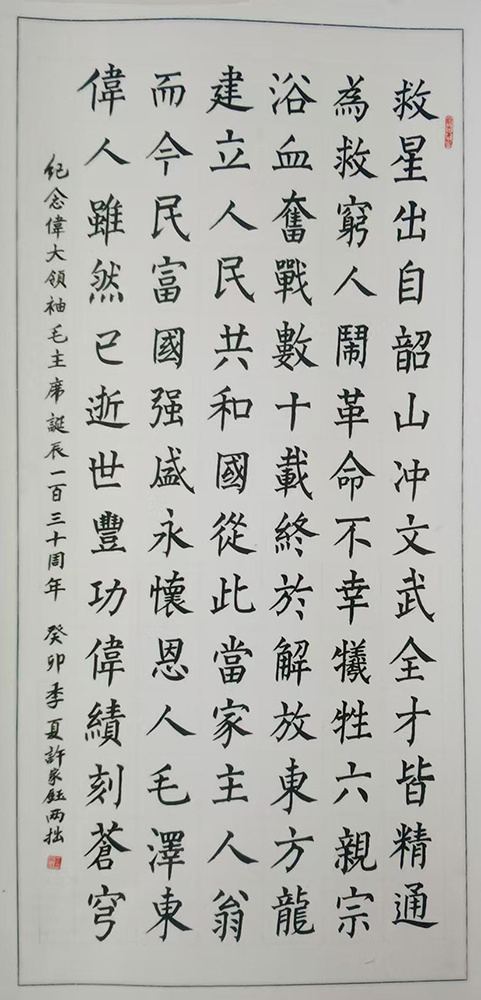 救星出自韶山冲文武全才皆精通
為救窮人鬧革命不幸犧牲六親宗
浴血奮戰數十載終於解放東方龍
建立人民共和國從此當家主人翁
而今民富國强盛永懷恩人毛澤東
偉人雖然已逝世豐功偉績刻蒼穹
紀念偉大領袖毛主席誕辰一百三十周年 癸卯季夏許家鈺兩拙